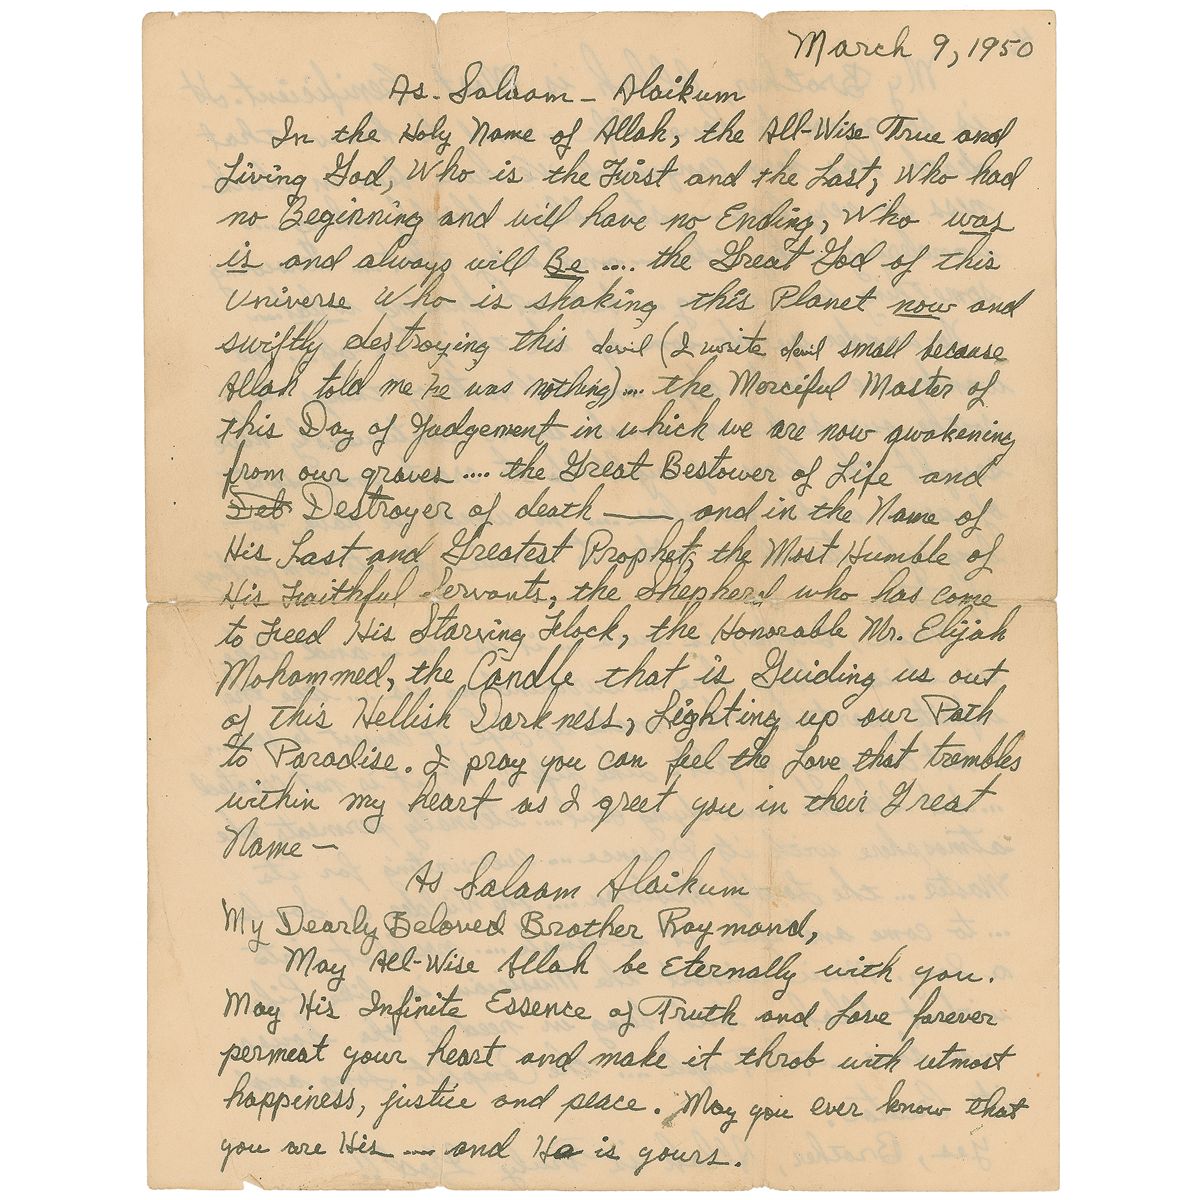 March 9, 1950
As-Salaam-Alaikum
In the Holy Name of Allah, the All-Wise True and
Living God, Who is the First and the Last, Who had
no Beginning and will have no Ending, Who was
is and always will Be .... the Great God of this
Universe Who is shaking this Planet now and
swiftly destroying this devil (I write devil small because
Allah told me he was nothing) .... the Merciful Master of
this Day of Judgement in which we are now awakening
from our graves .... the Great Bestower of Life and
Det Destroyer of death — and in the Name of
His Last and Greatest Prophet, the Most Humble of
His Faithful Servants, the Shepherd who has come
to Feed His Starving Flock, the Honorable Mr. Elijah
Mohammed, the Candle that is Guiding us out
of this Hellish Darkness, Lighting up our Path
to Paradise. I pray you can feel the Love that trembles
within my heart as I greet you in their Great
Name —
As Salaam Alaikum
My Dearly Beloved Brother Raymond,
May All-Wise Allah be Eternally with you.
May His Infinite Essence of Truth and Love forever
permeat your heart and make it throb with utmost
happiness, justice and peace. May you ever know that
you are His .... and He is yours.